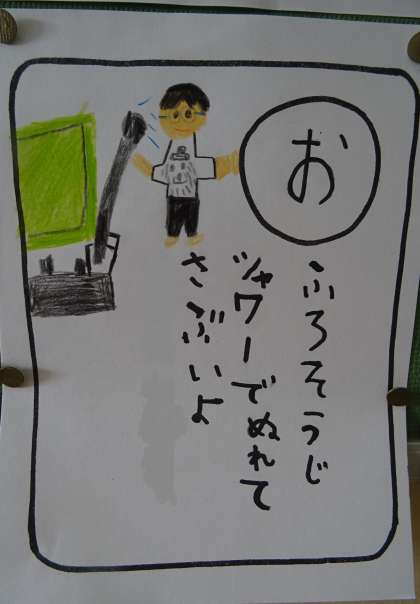 お
ふろそうじ
シャワーでぬれて
さぶいよ